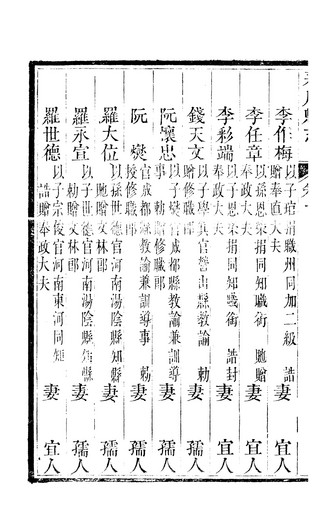 李作梅以子琯捐職州同加二級 誥
贈奉直大夫
妻 宜人
李任章以孫恩榮捐同知職銜 貤贈
奉政大夫
妻 宜人
李彩端以子恩榮捐同知職銜 誥封
奉政大夫
妻 宜人
錢天文以子 官 縣教諭 勅
贈修職郎
妻 孺人
阮懷忠以子燮官成都縣教諭兼訓導
事 勅贈修職郎
妻 孺人
阮 燮官成都縣教諭兼訓導事 勅
授修職郎
妻 孺人
羅大位以孫世德官河南湯陰縣知縣
貤贈文林郎
妻 孺人
羅丞宣以子世德官河南湯陰縣知縣
勅贈文林郎
妻 孺人
羅世德以子宗 官河南東河同知
誥贈奉政大夫
妻 宜人